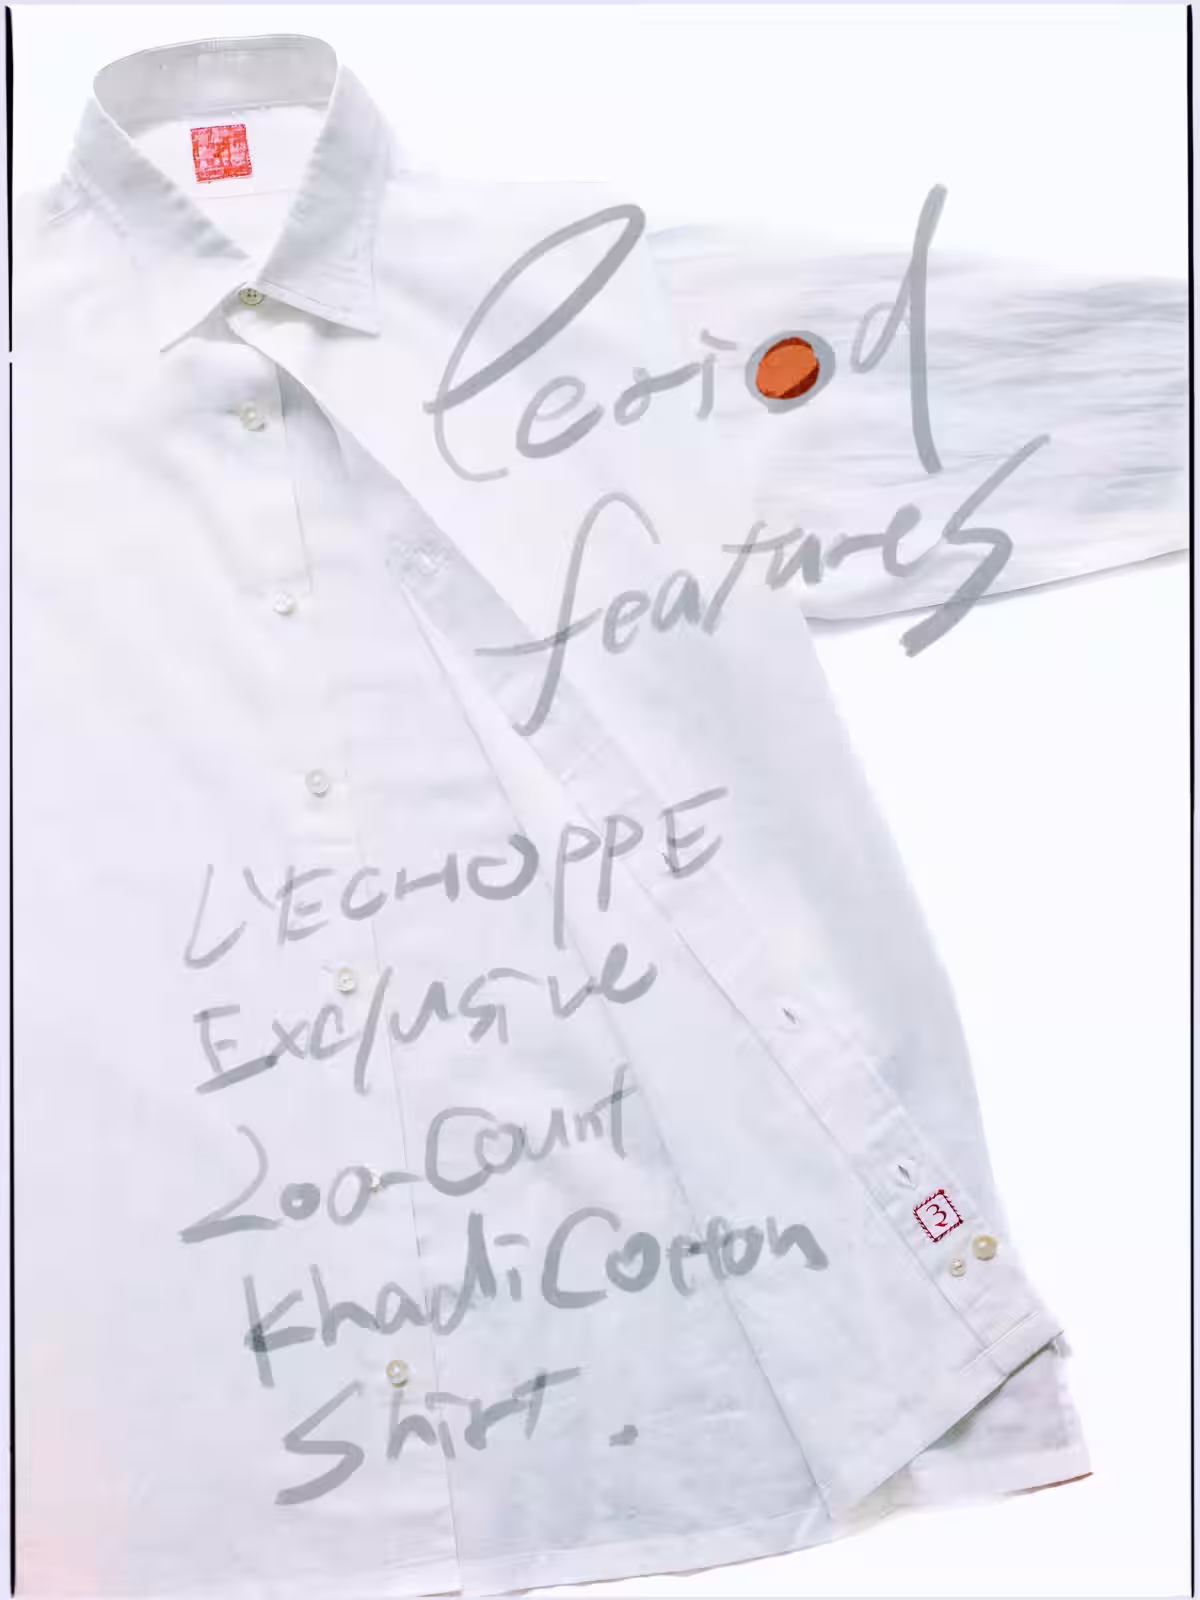 Period
features
L'ECHOPPE
Exclusive
200-Count
Khadi Cotton
Shirt.
3